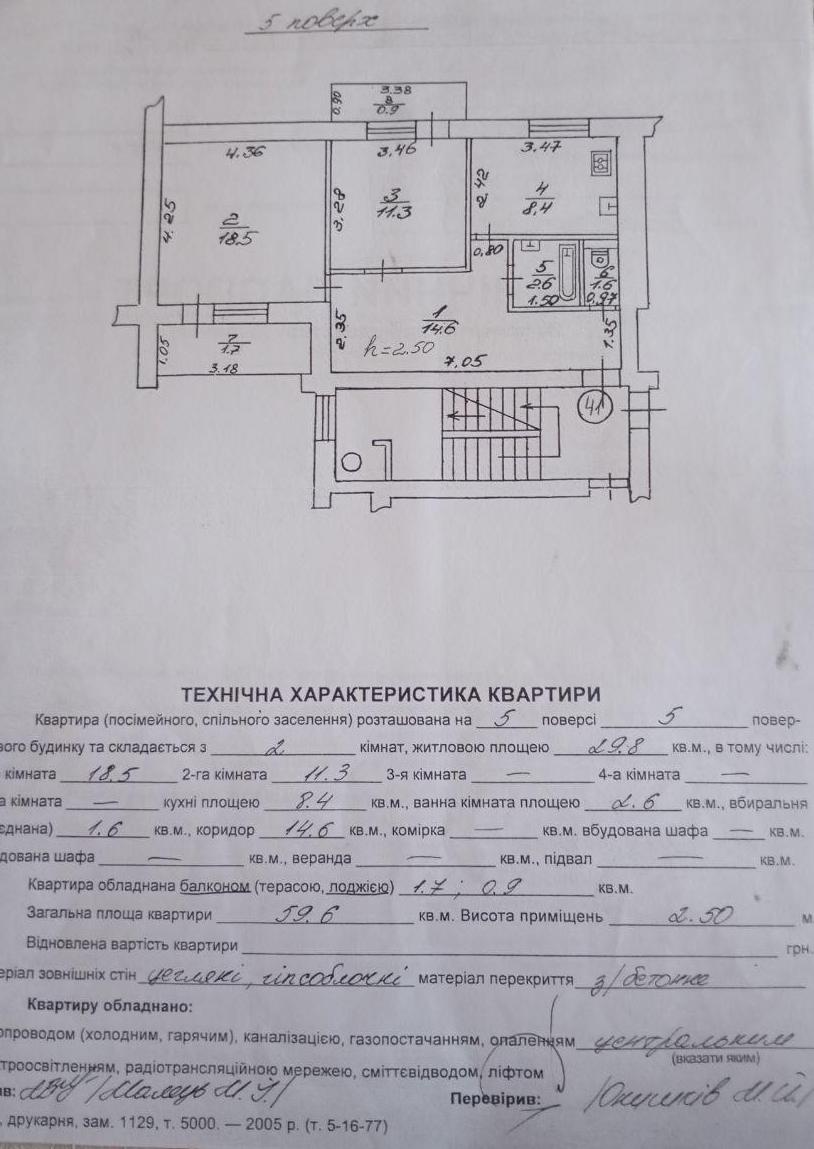 5 поверх
3.38
0.90
8
0.9
4.36
3.46
3.47
4.25
2
18.5
3.28
3
11.3
2.42
4
8.4
0.80
5
2.6
1.50
6
1.6
0.97
1.05
7
1.7
3.18
2.35
1
14.6
h=2.50
7.05
1.35
41
ТЕХНІЧНА ХАРАКТЕРИСТИКА КВАРТИРИ
Квартира (посімейного, спільного заселення) розташована на 5 поверсі 5 повер-
вого будинку та складається з 2 кімнат, житловою площею 29.8 кв.м., в тому числі:
кімната 18.5 2-га кімната 11.3 3-я кімната — 4-а кімната —
а кімната — кухні площею 8.4 кв.м., ванна кімната площею 2.6 кв.м., вбиральня
єднана) 1.6 кв.м., коридор 14.6 кв.м., комірка — кв.м. вбудована шафа — кв.м.
дована шафа — кв.м., веранда — кв.м., підвал — кв.м.
Квартира обладнана балконом (терасою, лоджією) 1.7 ; 0.9 кв.м.
Загальна площа квартири 59.6 кв.м. Висота приміщень 2.50 м
Відновлена вартість квартири грн.
еріал зовнішніх стін цегляні, гіпсоблочні матеріал перекриття з/бетонне
Квартиру обладнано:
опроводом (холодним, гарячим), каналізацією, газопостачанням, опаленням центральним
(вказати яким)
ктроосвітленням, радіотрансляційною мережею, сміттєвідводом, ліфтом
ив: Малець М.І. Перевірив:
, друкарня, зам. 1129, т. 5000. — 2005 р. (т. 5-16-77)